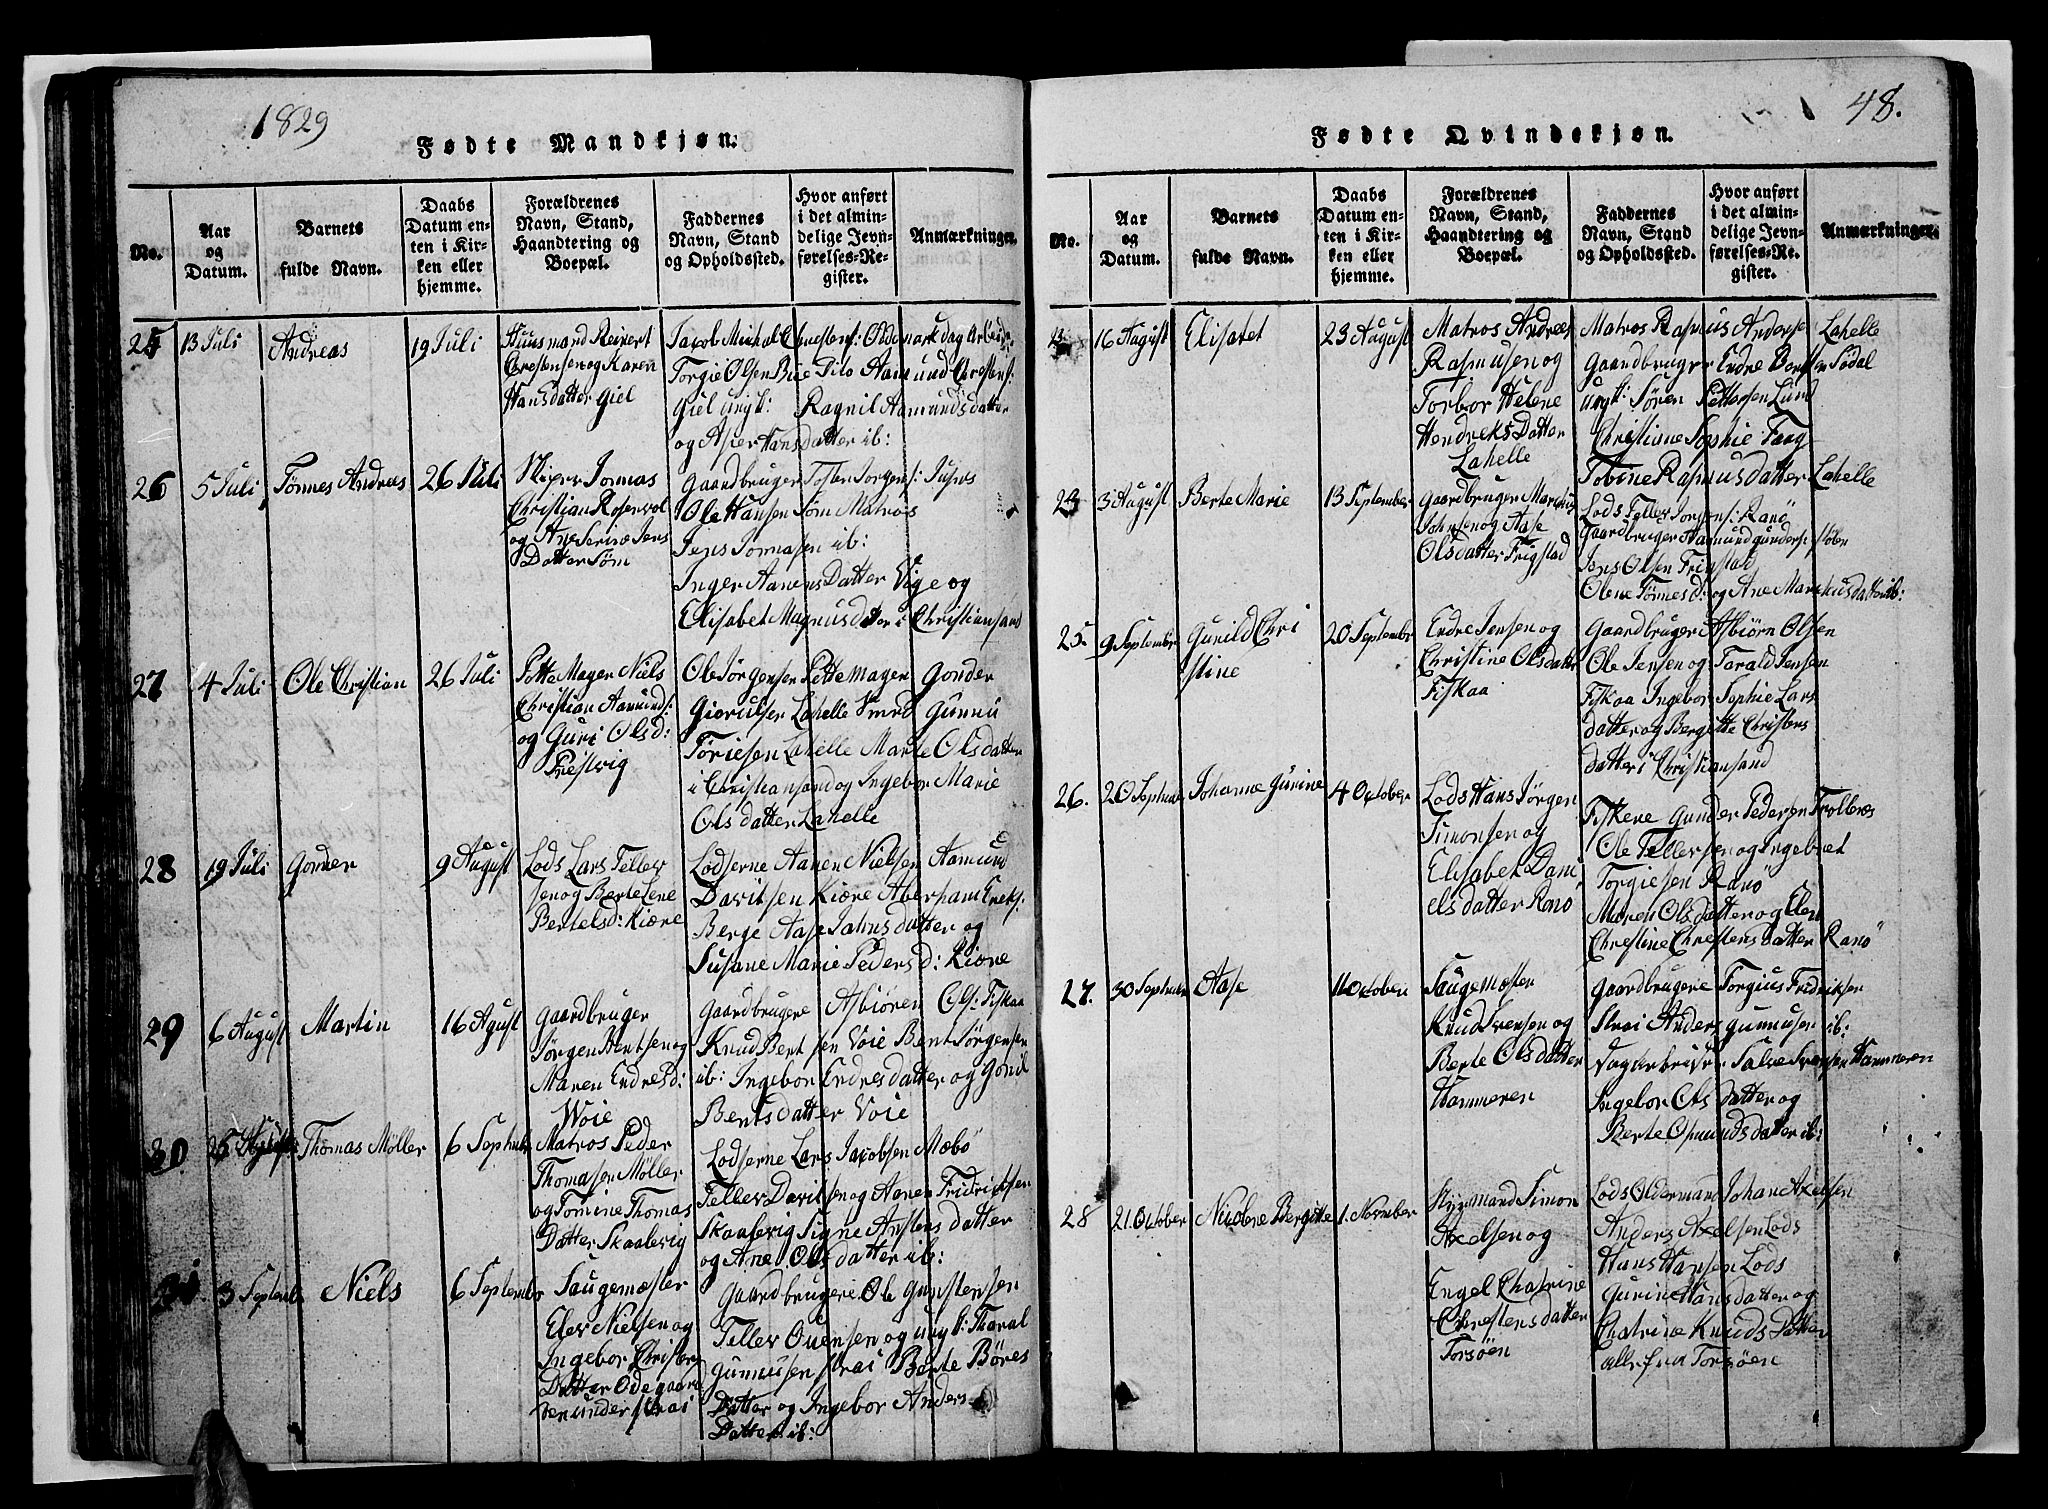 1829
Fødte Mandkjøn.
No.
Aar og Datum.
Barnets fulde Navn.
Daabs Datum enten i Kirken eller hjemme.
Forældrenes Navn, Stand, Haandtering og Boepæl.
Faddernes Navn, Stand og Opholdssted.
Hvor anført i det almindelige Jevnførelses-Register.
Anmærkninger.
25 13 Juli Andreas 19 Juli
Huusmand Reinert
Christensen og Karen
Hans datter Giel
Jacob Michal Christens: Oddemark dag Arbeider
Torgie Olsen Bue Tilo Aamund Chrestens:
Giel ungk: Ragnil Aamunds datter
og Aser Hans datter ib:
26 5 Juli Tønnes Andreas 26 Juli
Jonnas
Christian Rosenvol
og Ane Serine Jens
Datter Søm
Gaardbruger Jorgens: Jusvig
Ole Hansen Søm Matros
Jens Jonnasen ib:
Inger Aanens Datter Vige og
Elisabet Magnus datter i Christiansand
27 4 Juli Ole Christian 26 Juli
Potte Mager Niels
Christian Aamunds:
og Guri Olsd:
Prestvig
Ole Jørgensen Potte magen Gonder
Giorulsen Lahelle Smed Gunnu
Toriesen Lahelle Marte Olsdatter
i Christiansand og Ingebor Marie
Ols datter Lahelle
28 19 Juli Gonder 9 August
Lods Lars Teller
sen og Berte Lene
Bertelsd: Kiære
Lodserne Aanen Nielsen Aamund
Davitsen Kiære Aberham Ereks:
Berge Aase Jahns datter og
Susane Marie Peders d: Kiære
29 6 August Martin 16 Agust
Gaardbruger
Jørgen Bentsen og
Maren Endresd:
Woie
Gaardbrugere Asbiören Ols: Fiskaa
Knud Bertsen Voie Bent Jørgensen
ib: Ingebor Endres datter og Gonil
Bents datter Voie
30 25 August Thomas Møller 6 Septmbr
Matros Peder
Thomasen Møller
og Tomine Thomas
Datter Skaalevig
Lodserne Lars Jacobsen Mæbö
Teller Davitsen og Aanen Fridrichsen
Skaalevig Signe Anstens datter
og Ane Ols datter ib:
31. 3 Septembr Niels 6 Septembr
Saugemester
Elev Nielsen og
Ingebor Christens
Datter Ødegaard
en under Strai
Gaardbrugere Ole Gunstensen
Teller Ouensen og ungk: Tharal
Gunnusen Strai Berte Böres
Datter og Ingebor Anders
Datter ib:
48.
Fødte Qvindekjøn.
No.
Aar og Datum.
Barnets fulde Navn.
Daabs Datum enten i Kirken eller hjemme.
Forældrenes Navn, Stand, Haandtering og Boepæl.
Faddernes Navn, Stand og Opholdssted.
Hvor anført i det almindelige Jevnførelses-Register.
Anmærkninger.
23 16 August Elisabet 23 August
Matros Andreas
Rasmusen og
Torbor Helene
Hendreks Datter
Lahelle
Matros Rasmus Anderse Lahelle
Gaardbruger Endre Bentsen Sødal
Ungk: Søren Pettersen Lund
Christiane Sophie Faag
Tobine Rasmus datter Lahelle
24 3 August Berte Marie 13 September
Gaardbruger Marchus
Johnsen og Aase
Olsdatter Frigstad
Lods Teller Jorgens: Ranö
Gaardbruger Aamund Gunders: Støbn
Jens Olsen Frigstad
Olene Tønnesd: og Ane Markus datter ib:
25. 9 Septembr Gunild Chri
stine 20 Septembr
Endre Jensen og
Christine Olsdatter
Fiskaa
Gaardbruger Asbiörn Olsen
Ole Jensen og Tarald Jensen
Fiskaa Ingebor Sophie Lars
datter og Bergitte Christens
datter i Christiansand
26. 20 Septmbr Johanne Gunine 4 October
Lods Hans Jørgen
Simonsen og
Elisabet Dani
els datter Ranö
Fiskene Gunder Pedersen Trollenes
Ole Tellersen og Ingebret
Torgiesen Ranö
Maren Ols datter og Elen
Chrestine Chrestens datter Ranö
27. 30 Septmbr Aase 11 October
Saugemester
Knud Svensen og
Berte Olsdatter
Hammeren
Gaardbrugere Torgius Fridriksen
Strai Anders Gunnusen ib:
Dagarbeider Salve Svensen Hammeren
Ingebor Ols datter og
Berte Osmunds datter ib:
28 21 October Nicolene Bergitte 1. November
Simon
Axelsen og
Engel Chatrine
Chrestens datter
Torsøen
Lods Oldermand Johan Axelsen
Anders Axelsen Lods
Hans Hansen Lods
Gurine Hans datter og
Chatrine Knuds Datter
alle fra Torsøen